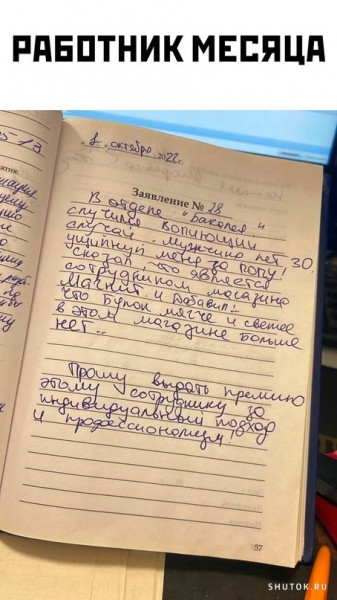 РАБОТНИК МЕСЯЦА
1 октября 2022г.
Заявление № 18
В отделе "Бакалея"
случился вопиющий
случай. Мужчина лет 30,
ущипнул меня за попу!
Сказал что является
сотрудником магазина
Магнит. и добавил:
что булок мягче и свежее
в этом магазине больше
нет...
Прошу выдать премию
этому сотруднику за
индивидуальный подход
и профессионализм!
57
SHUTOK.RU